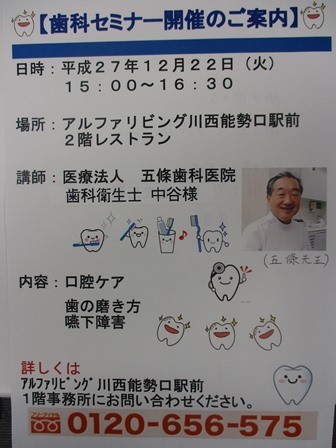 【歯科セミナー開催のご案内】
日時：平成２７年１２月２２日（火）
１５：００～１６：３０
場所：アルファリビング川西能勢口駅前
２階レストラン
講師：医療法人　五條歯科医院
歯科衛生士 中谷様
（五條先生）
内容：口腔ケア
歯の磨き方
嚥下障害
詳しくは
ｱﾙﾌｧﾘﾋﾞﾝｸﾞ川西能勢口駅前
１階事務所にお問い合わせください。
フリーダイヤル
0120-656-575